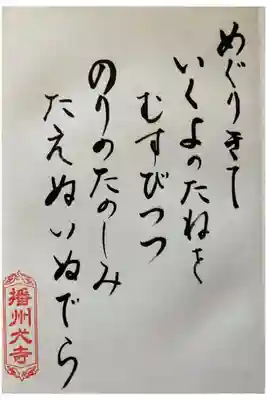 めぐりきて
いくよのたねを
むすびつつ
のりのたのしみ
たえぬいぬでら
播州犬寺